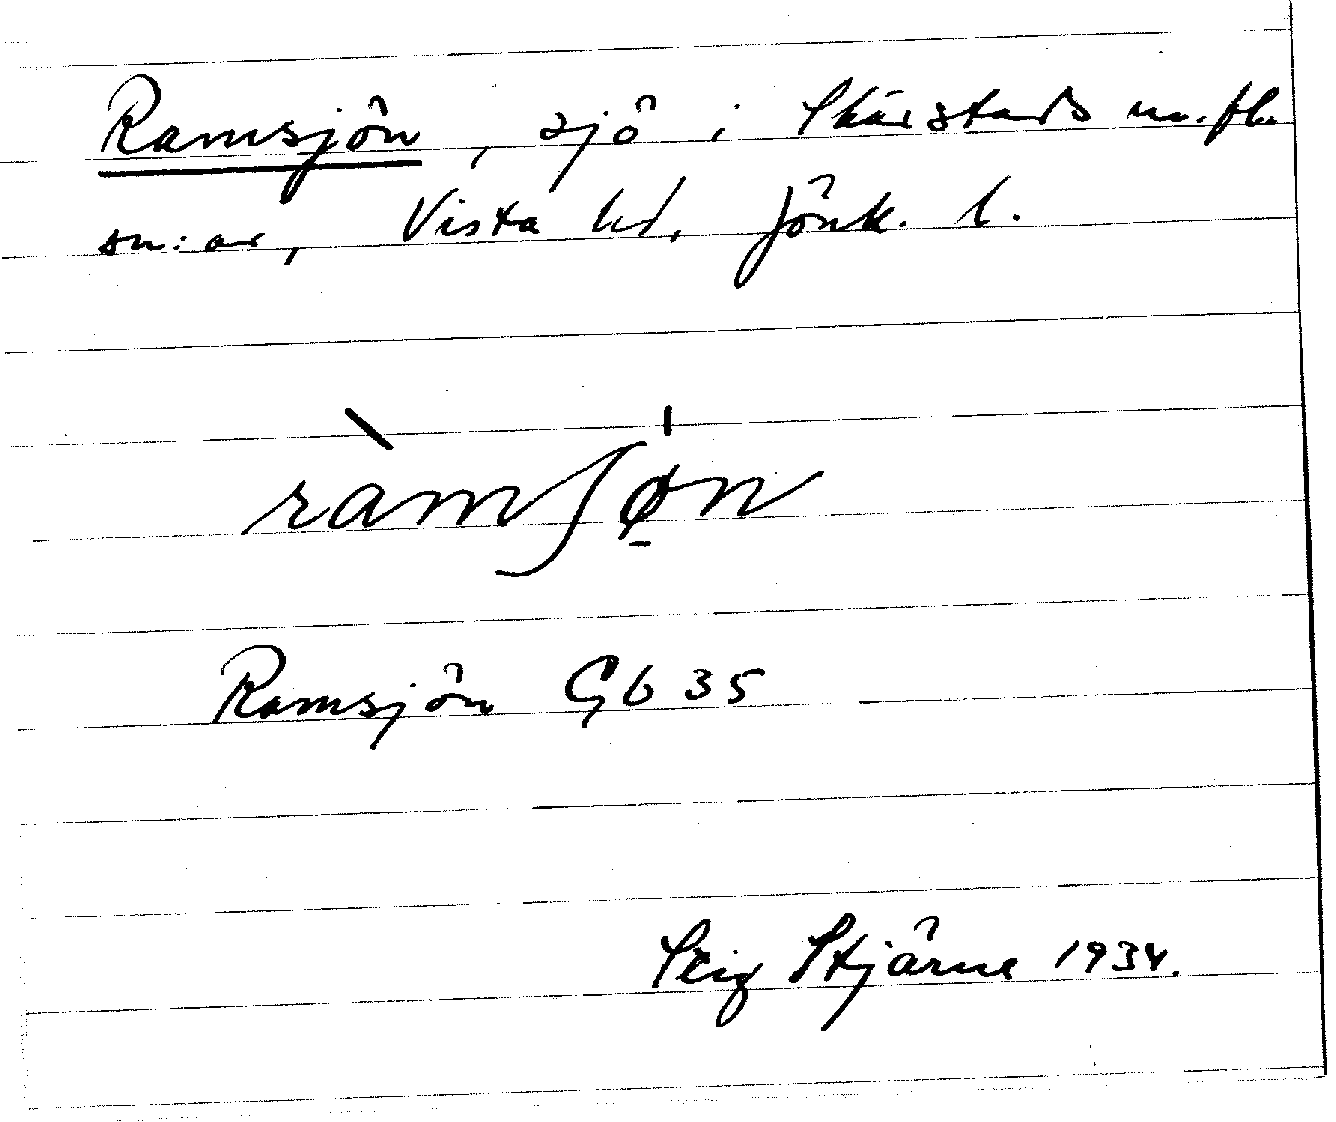 Ramsjön, sjö i Skärstads m.fl.
sn:ar, Vista hd, Jönk. l.
ràmʃø̠n
Ramsjön Gb 35
Stig Stjärne 1934.